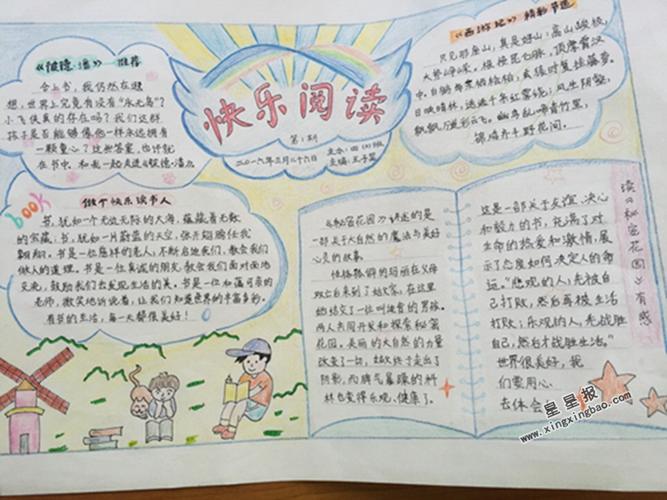 《彼德·潘》 推荐
合上书,我仍然在遐
想,世界上究竟有没有“永无岛”?
小飞侠真的存在吗?我们这群
孩子是否能够像他一样永远拥有
一颗童心?这些答案,也许就
在书中,和我一起走进《彼德·潘》。
快乐阅读
第1期
二〇一六年三月二十六日
主办:四(1)班
主编:王子菡
《西游记》精彩节选
只见那座山,真是好山:高山峻极,
大势峥嵘。根接昆仑脉,顶摩霄汉
中。
日映晴林,
做个快乐读书人
book
书,犹如一个无边无际的大海,蕴藏着无数
的宝藏;书,犹如一片蔚蓝的天空,张开翅膀任我
翱翔。书是一位慈祥的老人,不断启迪我们,教会我们
做人的道理。书是一位真诚的朋友,教会我们面对面地
交流,鼓励我们去发现生活的美。书是一位和蔼可亲的
老师,微笑地听说着,让我们知道世界的丰富多彩。
有书的生活,每一天都很美好!
读《秘密花园》有感
《秘密花园》讲述的是
一部关于大自然的魔法与美好
心灵的故事。
性格孤僻的玛丽在父母
双亡后来到了姑父家,在这里
她结交了一位叫迪肯的男孩。
两人共同开发和探索秘密
花园。美丽的大自然的力量
改变了一切,姑父终于走出了
阴影,而脾气暴躁的柯林
也变得乐观、健康了。
这是一部关于友谊、决心
和毅力的书,充满了对
生命的热爱和激情,展
示了态度如何决定人的命
运。“悲观的人,先被自
己打败,然后再被生活
打败;乐观的人,先战胜
自己,然后才战胜生活。”
世界很美好,我
们要用心
去体会
星星报
www.xingxingbao.com